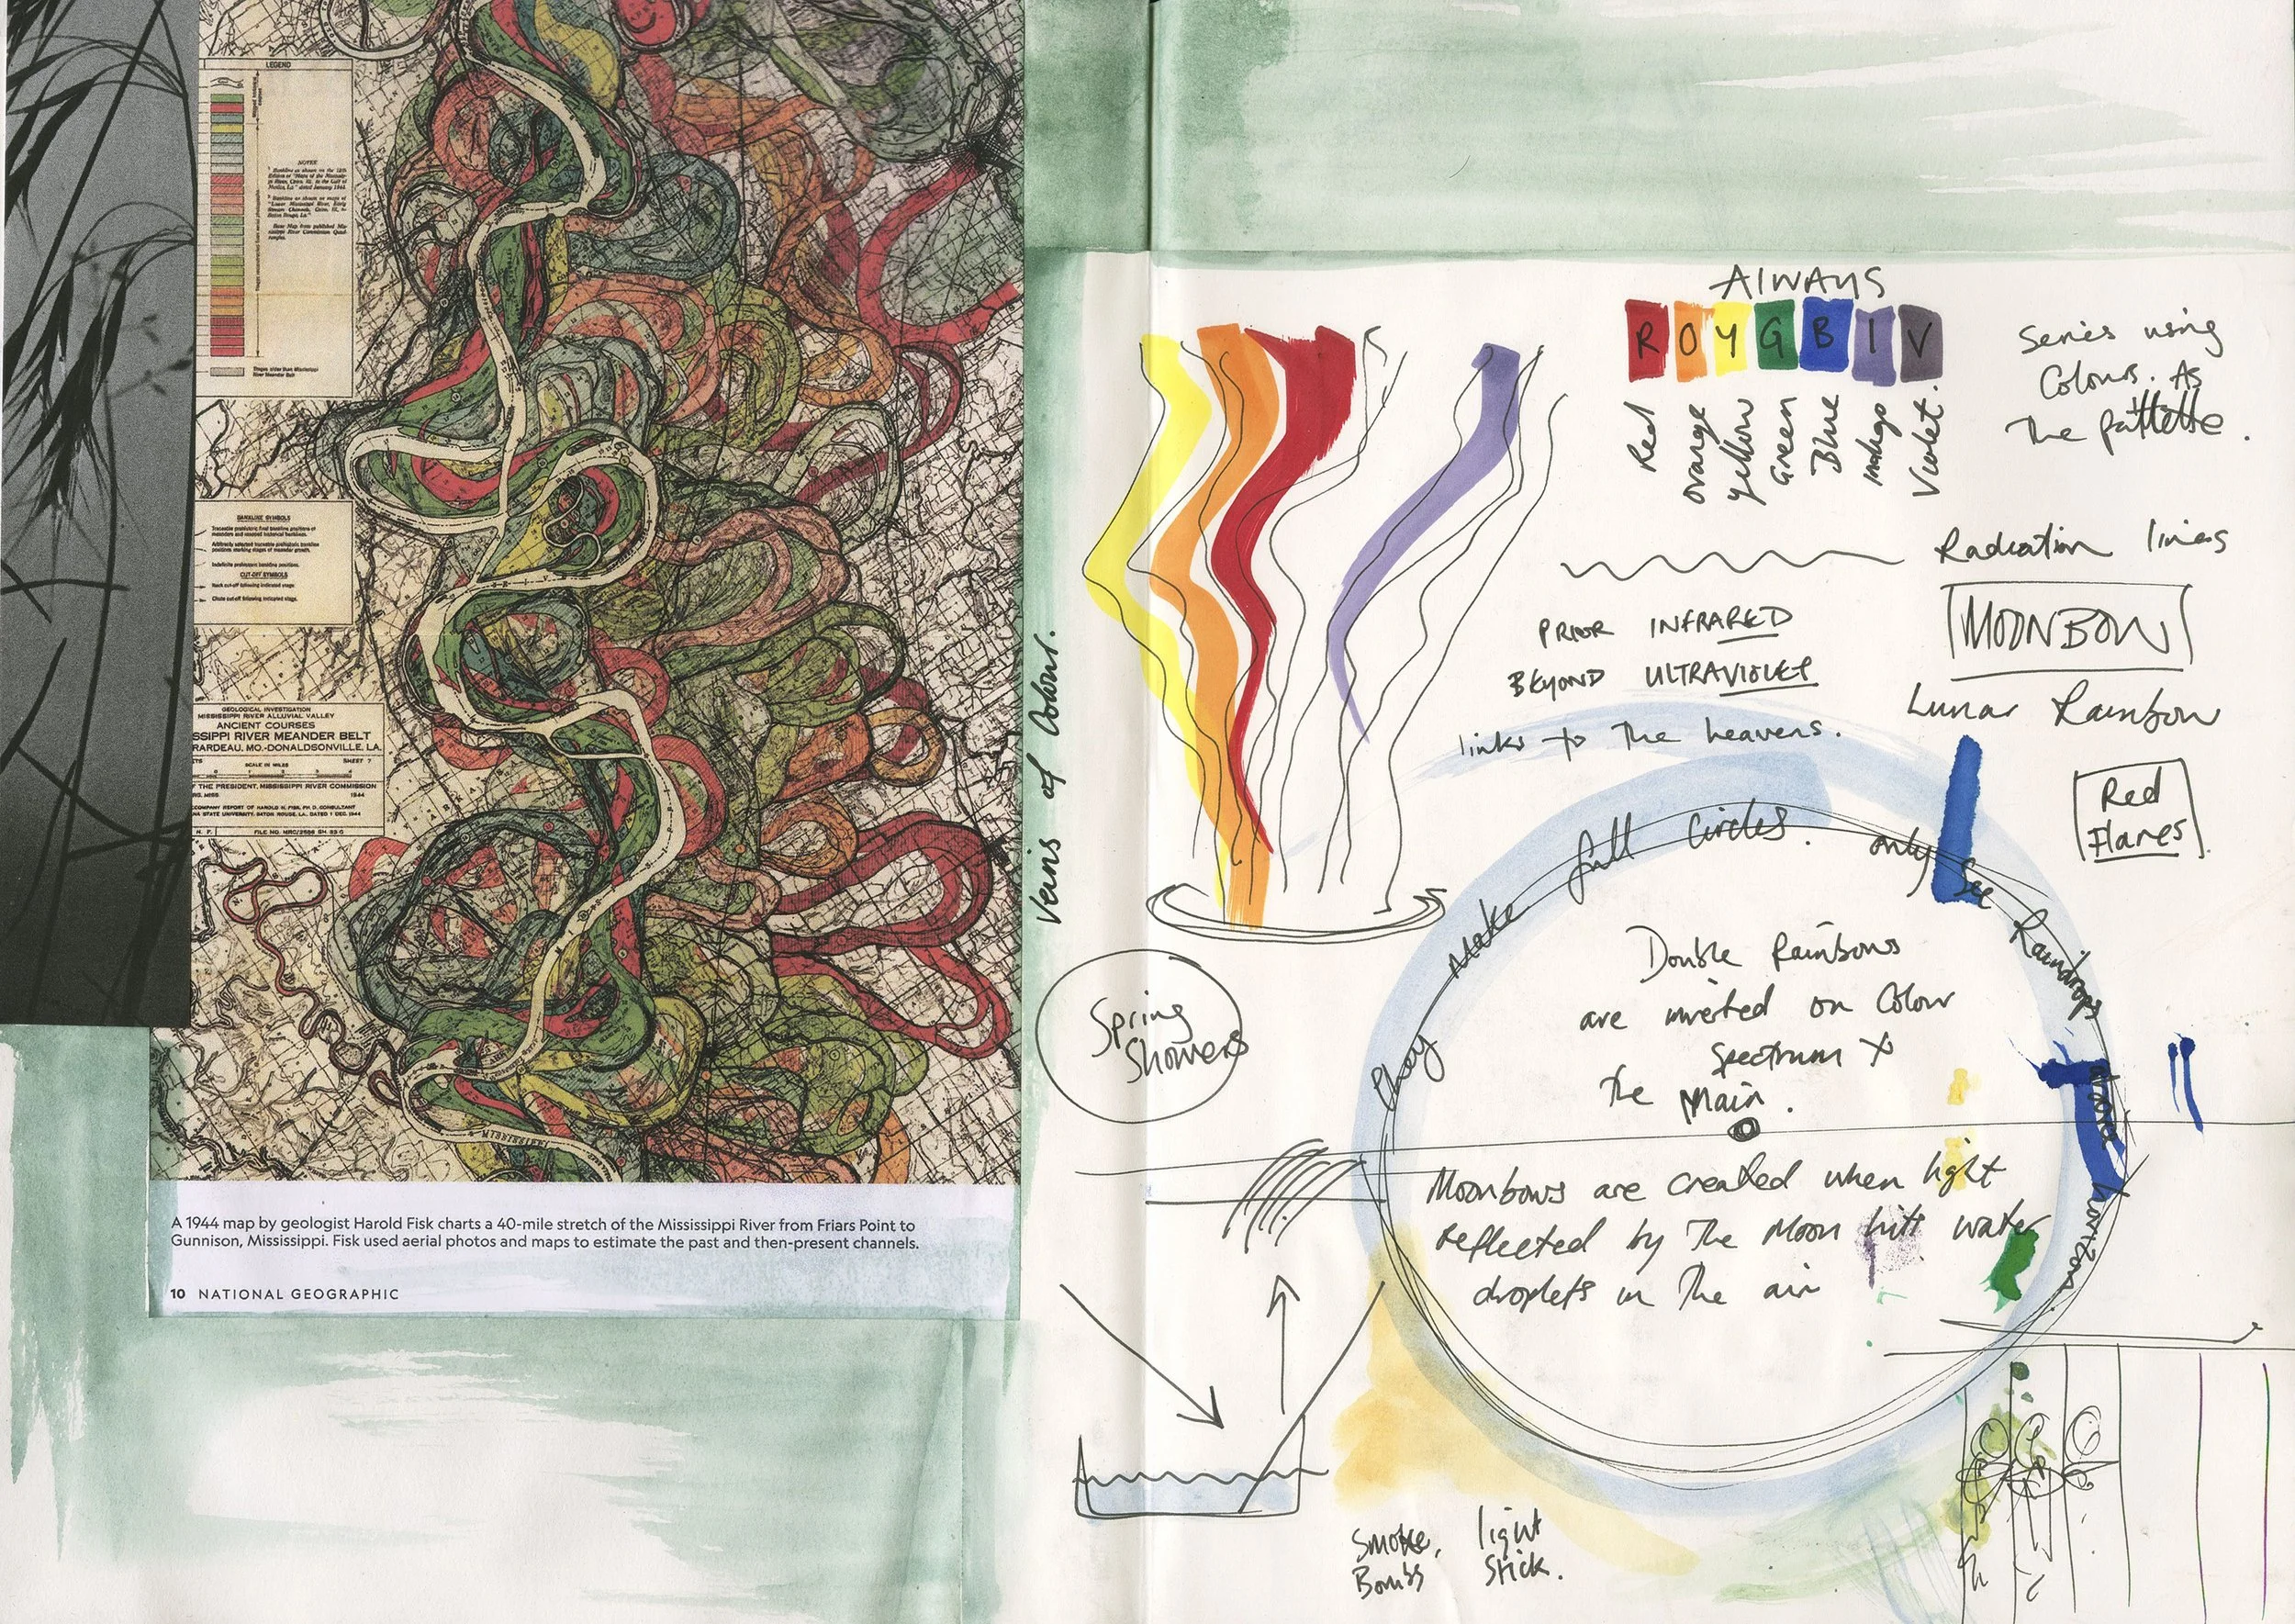 LEGEND
NOTES
BANKLINE SYMBOLS
CUT-OFF SYMBOLS
GEOLOGICAL INVESTIGATION
MISSISSIPPI RIVER ALLUVIAL VALLEY
ANCIENT COURSES
SSIPPI RIVER MEANDER BELT
RARDEAU, MO.-DONALDSONVILLE, LA.
SCALE IN MILES
SHEET 7
F THE PRESIDENT, MISSISSIPPI RIVER COMMISSION
1944
MISSISSIPPI
A 1944 map by geologist Harold Fisk charts a 40-mile stretch of the Mississippi River from Friars Point to
Gunnison, Mississippi. Fisk used aerial photos and maps to estimate the past and then-present channels.
10 NATIONAL GEOGRAPHIC
Veins of Colour.
AlWAYS
R O Y G B I V
Red
orange
yellow
Green
Blue
indigo
Violet.
Series using
Colours. As
The pattette.
Radiation lines
PRIOR INFRARED
BEYOND ULTRAVIOLET
links to The heavens.
MOONBOW
Lunar Rainbow
Red
Flares.
They Make full Circles. only See Raindrops above horizon.
Double Rainbows
are inverted on Colour
Spectrum X
The Main.
Moonbows are created when light
reflected by The Moon hits water
droplets in The air
Spring
Showers
Smoke, Bombs
light Stick.